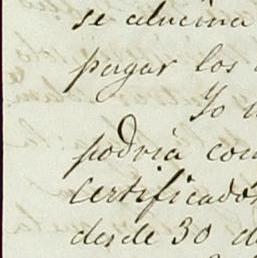 se alucina
pagar los
Yo
podria con
certificados
desde 30 d